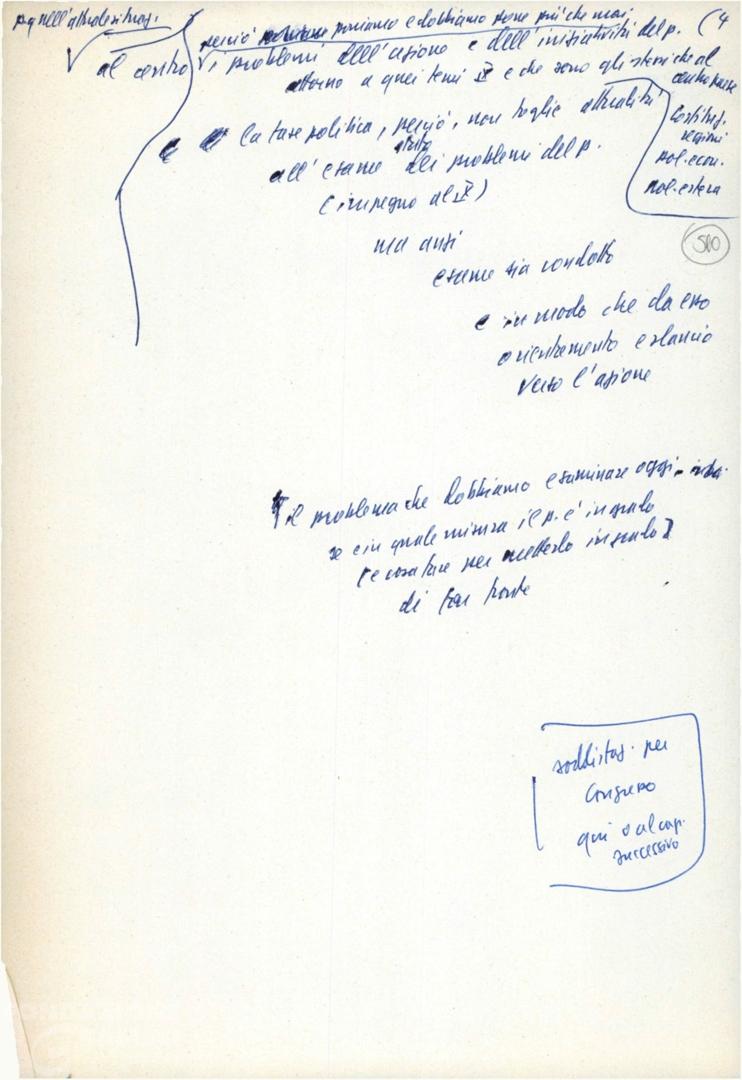 (4
nell'attuale situaz.
perciò poniamo e dobbiamo porre più che mai
al centro i problemi dell'azione e dell'iniziativa del p.
attorno a quei temi IX e che sono gli stessi che al
centro paese
Costituz.
regioni
pol. econ.
pol. estera
La fase politica, perciò, non toglie attualità
all'esame dei problemi del p.
(impegno al IX)
ma anzi
500
esame sia condotto
e in modo che da esso
orientamento e slancio
verso l'azione
il problema che dobbiamo esaminare oggi
se e in quale misura il p. è in grado
(e cosa fare per metterlo in grado)
di far fronte
soddisfaz. per
Congresso
qui o al cap.
successivo